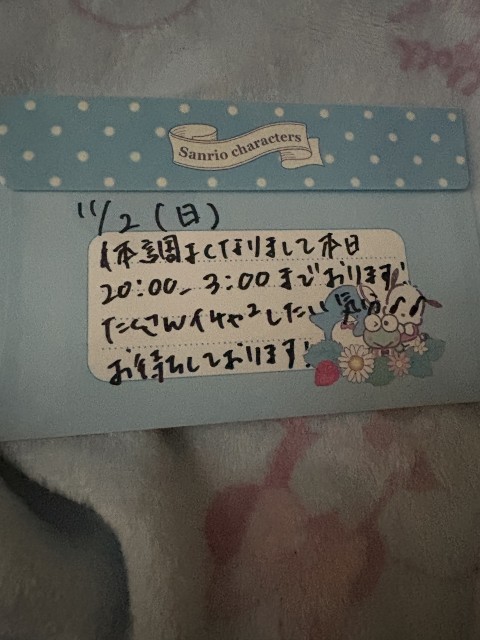 Sanrio characters
11/2(日)
体調よくなりまして本日
20:00〜3:00までおります!
たくさんイチャ²したい気分♪♪
お待ちしております!